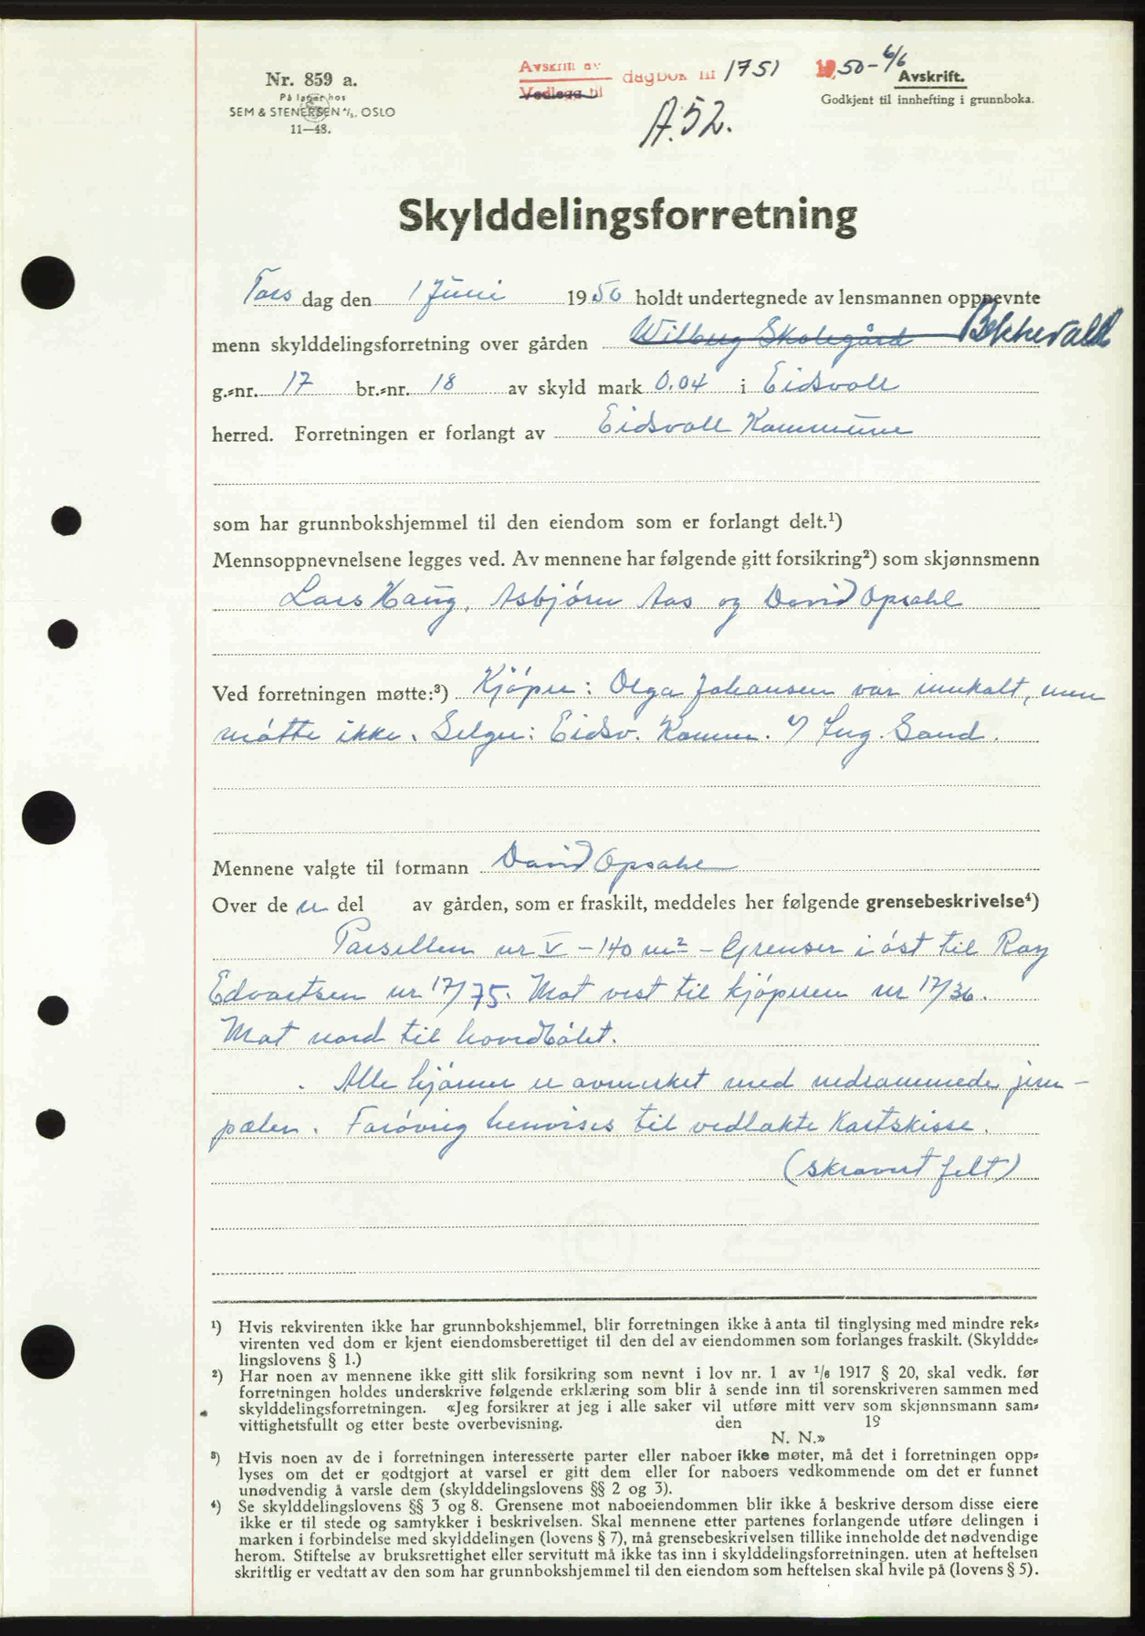 Nr. 859 a.
På lager hos
SEM & STENERSEN A/S. OSLO
11—48.
Avskrift av
Vedlegg til
dagbok nr 1751 1950 - 6/6
A.52.
Avskrift.
Godkjent til innhefting i grunnboka.
Skylddelingsforretning
Tors dag den 1 Juni 1950 holdt undertegnede av lensmannen oppnevnte
menn skylddelingsforretning over gården Wilberg Skolegård Bekkevald
g.-nr. 17 br.-nr. 18 av skyld mark 0,04 i Eidsvoll
herred. Forretningen er forlangt av Eidsvoll Kommune
som har grunnbokshjemmel til den eiendom som er forlangt delt.¹)
Mennsoppnevnelsene legges ved. Av mennene har følgende gitt forsikring²) som skjønnsmenn
Lars Haug, Asbjörn Aas og David Opsahl
Ved forretningen møtte:³) Kjöper: Olga Johansen var innkalt, men
måtte ikke. Selger: Eidsv. Komm. v/ Ing. Sand.
Mennene valgte til formann David Opsahl
Over de n del av gården, som er fraskilt, meddeles her følgende grensebeskrivelse⁴)
Parsellen nr V - 140 m² - Grenser i öst til Roy
Edvartsen nr 17/75. Mot vest til kjöperen nr 17/36.
Mot nord til hovedbölet.
Alle hjörner er avmerket med nedrammede jern-
pæler. Forövrig henvises til vedlakte Kartskisse.
(skravert felt)
¹) Hvis rekvirenten ikke har grunnbokshjemmel, blir forretningen ikke å anta til tinglysing med mindre rek-
virenten ved dom er kjent eiendomsberettiget til den del av eiendommen som forlanges fraskilt. (Skyldde-
lingslovens § 1.)
²) Har noen av mennene ikke gitt slik forsikring som nevnt i lov nr. 1 av 1/6 1917 § 20, skal vedk. før
forretningen holdes underskrive følgende erklæring som blir å sende inn til sorenskriveren sammen med
skylddelingsforretningen. «Jeg forsikrer at jeg i alle saker vil utføre mitt verv som skjønnsmann sam-
vittighetsfullt og etter beste overbevisning. den 19
N. N.»
³) Hvis noen av de i forretningen interesserte parter eller naboer ikke møter, må det i forretningen opp-
lyses om det er godtgjort at varsel er gitt dem eller for naboers vedkommende om det er funnet
unødvendig å varsle dem (skylddelingslovens §§ 2 og 3).
⁴) Se skylddelingslovens §§ 3 og 8. Grensene mot naboeiendommen blir ikke å beskrive dersom disse eiere
ikke er til stede og samtykker i beskrivelsen. Skal mennene etter partenes forlangende utføre delingen i
marken i forbindelse med skylddelingen (lovens § 7), må grensebeskrivelsen tillike inneholde det nødvendige
herom. Stiftelse av bruksrettighet eller servitutt må ikke tas inn i skylddelingsforretningen. uten at heftelsen
skriftlig er vedtatt av den som har grunnbokshjemmel til den eiendom som heftelsen skal hvile på (lovens § 5).